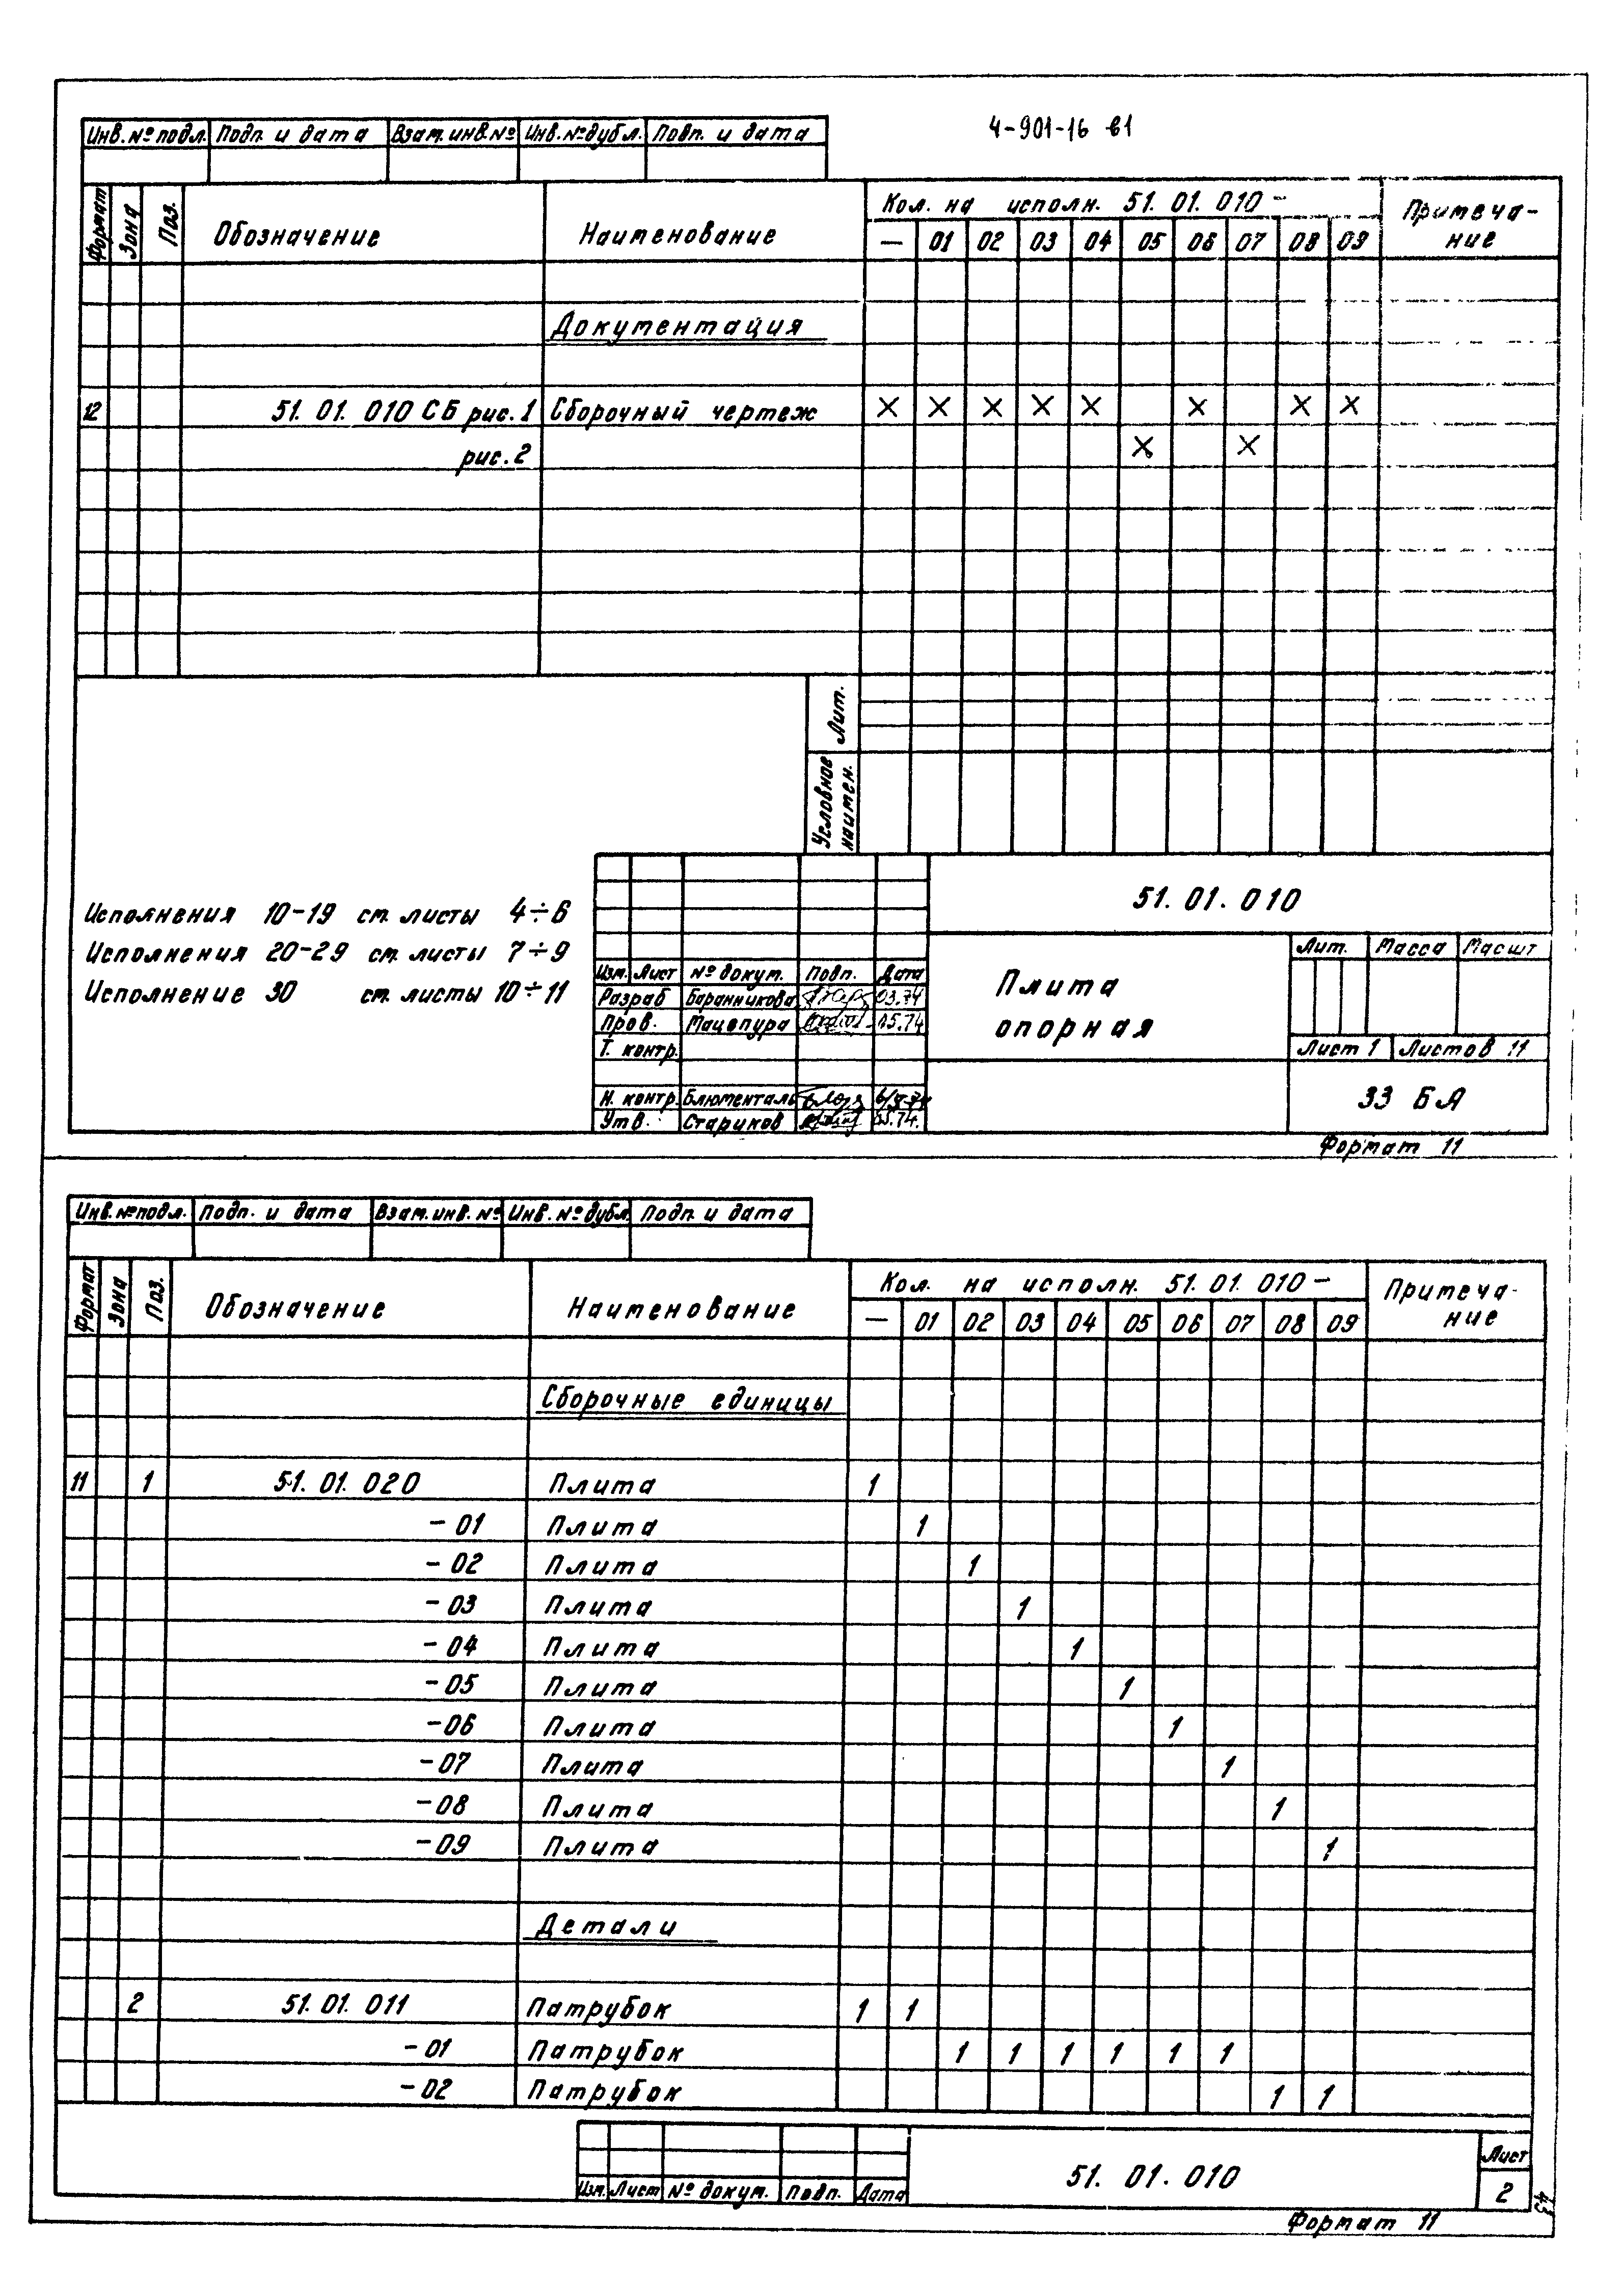 4-901-16 в1
Инв.№подл. Подп. и дата Взам.инв.№ Инв.№дубл. Подп. и дата
Формат Зона Поз. Обозначение Наименование Кол. на исполн. 51. 01. 010 - Примеча-
ние
— 01 02 03 04 05 06 07 08 09
Документация
12 51. 01. 010 СБ рис. 1 Сборочный чертеж × × × × × × × ×
рис. 2 × ×
Лит.
Условное
наимен.
Исполнения 10-19 см. листы 4÷6
Исполнения 20-29 см. листы 7÷9
Исполнение 30 см. листы 10÷11
51. 01. 010
Изм. Лист № докум. Подп. Дата
Разраб Баранникова 03.74
Пров. Мацепура 05.74
Т. контр.
Н. контр. Блюменталь
Утв. Стариков 05.74.
Плита
опорная
Лит. Масса Масшт
Лист 1 Листов 11
33 БА
Формат 11
Инв.№подл. Подп. и дата Взам.инв. № Инв. №дубл. Подп. и дата
Формат Зона Поз. Обозначение Наименование Кол. на исполн. 51. 01. 010 - Примеча-
ние
— 01 02 03 04 05 06 07 08 09
Сборочные единицы
11 1 51. 01. 020 Плита 1
- 01 Плита 1
- 02 Плита 1
- 03 Плита 1
- 04 Плита 1
- 05 Плита 1
- 06 Плита 1
- 07 Плита 1
- 08 Плита 1
- 09 Плита 1
Детали
2 51. 01. 011 Патрубок 1 1
- 01 Патрубок 1 1 1 1 1 1
- 02 Патрубок 1 1
Изм. Лист № докум. Подп. Дата
51. 01. 010
Лист
2
Формат 11